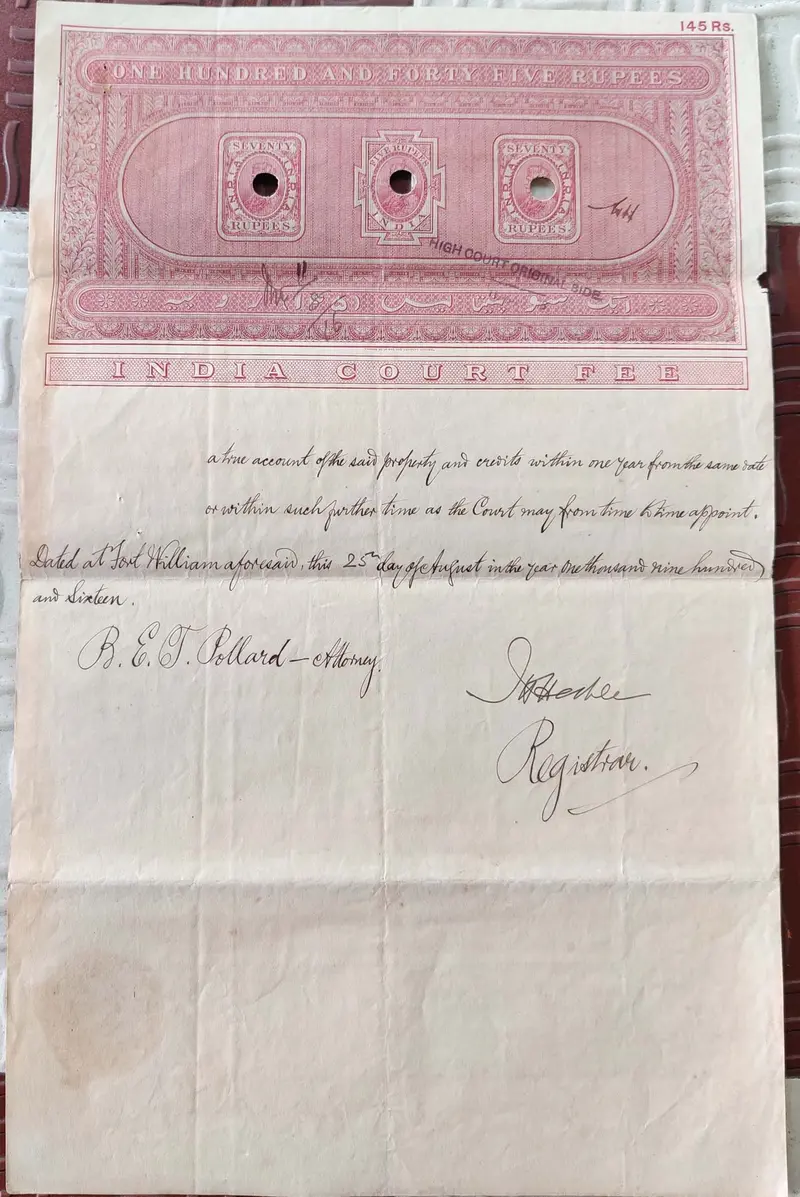 145 Rs.
ONE HUNDRED AND FORTY FIVE RUPEES
SEVENTY
INDIA INDIA
RUPEES
FIVE RUPEES
INDIA
SEVENTY
INDIA INDIA
RUPEES
HIGH COURT ORIGINAL SIDE
INDIA COURT FEE
a true account of the said property and credits within one year from the same date
or within such further time as the Court may from time to time appoint.
Dated at Fort William aforesaid, this 25th day of August in the year one thousand nine hundred
and Sixteen.
B. E. T. Pollard - Attorney.
Registrar.